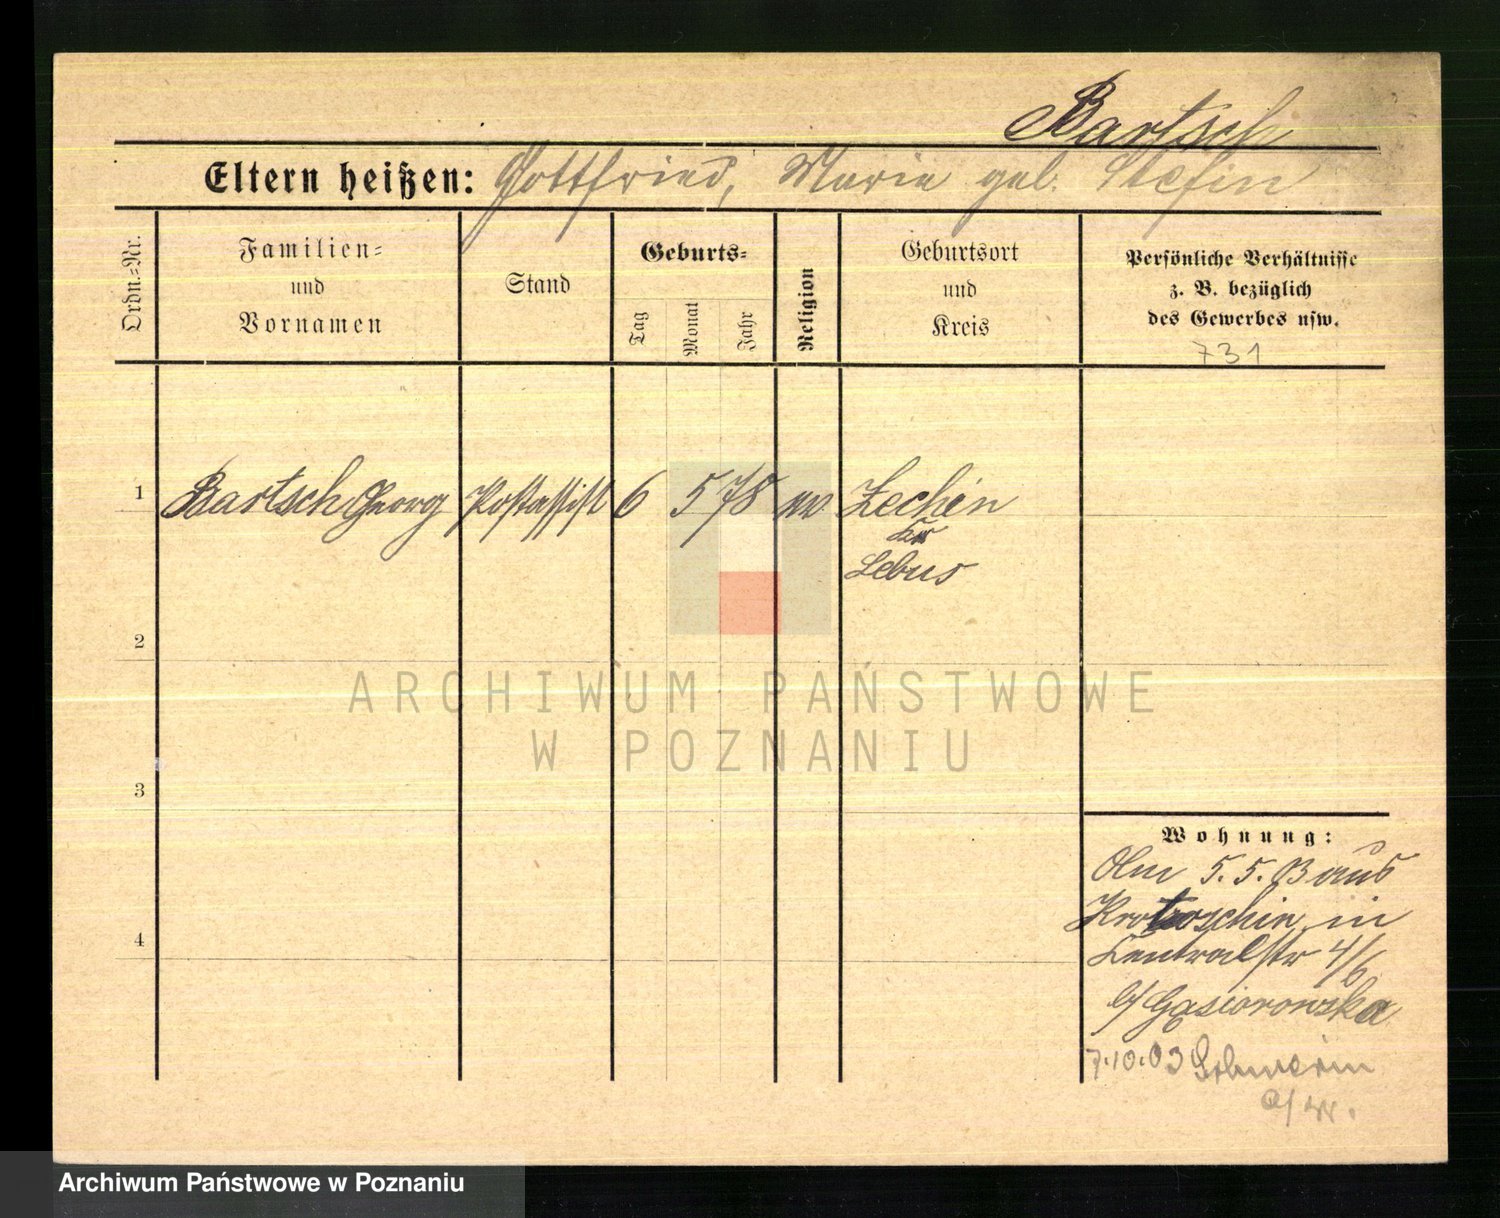 Bartsch
Eltern heißen: Gottfried, Marie geb. Stefin
Ordn.=Nr.
Familien=
und
Vornamen
Stand
Geburts=
Tag
Monat
Jahr
Religion
Geburtsort
und
Kreis
Persönliche Verhältnisse
z. B. bezüglich
des Gewerbes usw.
731
1 Bartsch Georg Postassist 6 5 78 Zechin
Kr
Lebus
2
3
4
Wohnung:
5.5. aus
Krotoschin in
Centralstr 4/6
b/ Gasiorowska
7.10.03 Schwerin
a/W.
ARCHIWUM PAŃSTWOWE
W POZNANIU
Archiwum Państwowe w Poznaniu